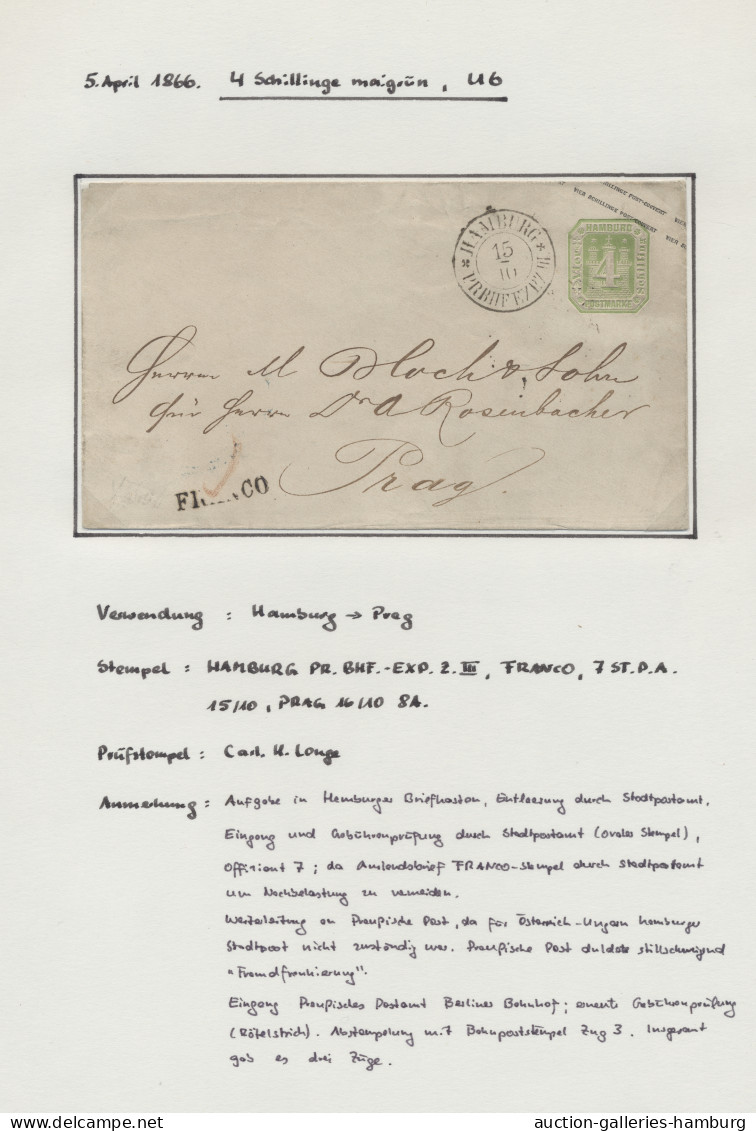 5. April 1866. 4 Schillinge maigrün, U6
VIER SCHILLINGE POST-COUVERT VIER
VIER SCHILLINGE POST-COUVERT VIER
HAMBURG
15
10
HAMBURG
4
Vier
Schilling
POSTMARKE
Herrn M Bloch & Sohn
für Herrn Dr A Rosenbacher
Prag.
FRANCO
Verwendung : Hamburg → Prag
Stempel : HAMBURG PR. BHF.-EXP. Z. III, FRANCO, 7 ST.P.A.
15/10, PRAG 16/10 8A.
Prüfstempel : Carl. H. Lange
Anmerkung : Aufgabe in Hamburger Briefkasten, Entleerung durch Stadtpostamt.
Eingang und Gebührenprüfung durch Stadtpostamt (ovaler Stempel),
Offiziant 7 ; da Auslandsbrief FRANCO-Stempel durch Stadtpostamt
um Nachbelastung zu vermeiden.
Weiterleitung an Preußische Post, da für Österreich-Ungarn Hamburger
Stadtpost nicht zuständig war. Preußische Post duldete stillschweigend
"Fremdfrankierung".
Eingang Preußisches Postamt Berliner Bahnhof ; erneute Gebührenprüfung
(Rötelstrich). Abstempelung mit Bahnpoststempel Zug 3. Insgesamt
gab es drei Züge.
auction-galleries-hamburg